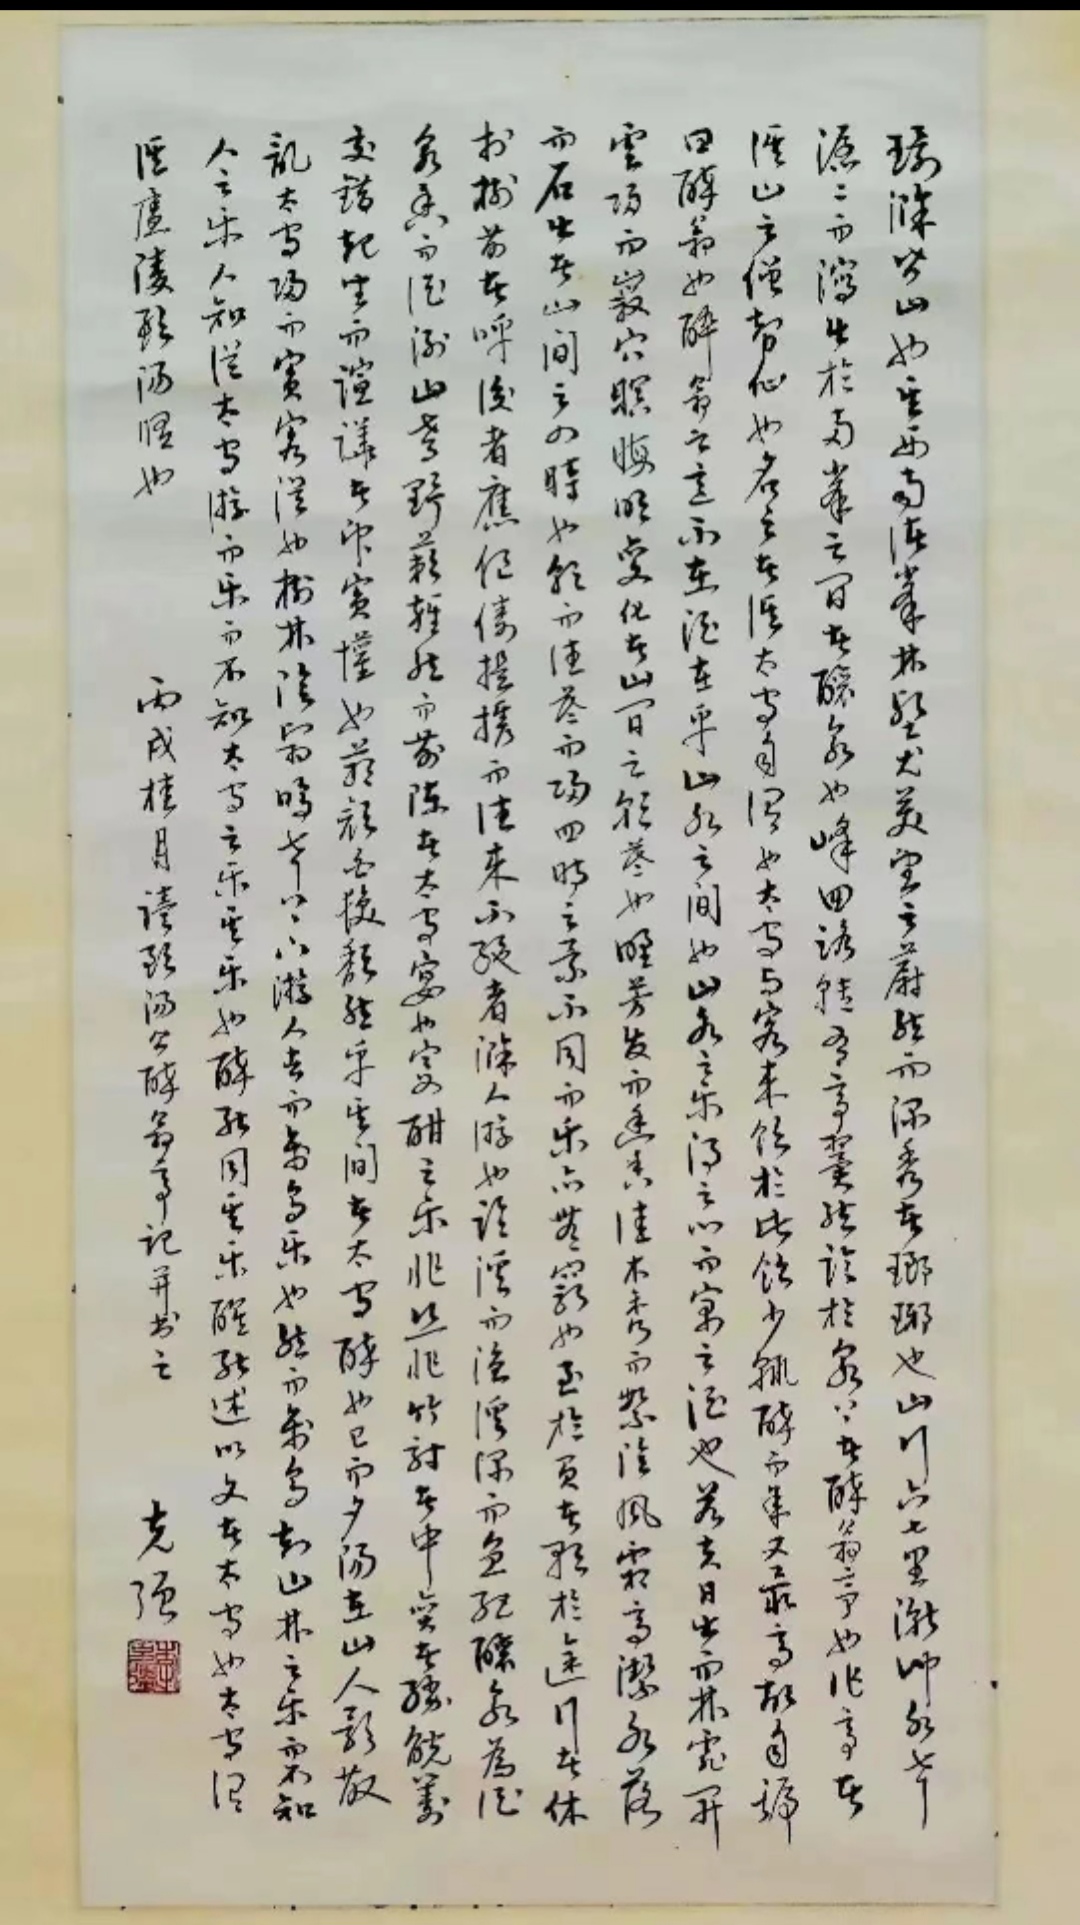 環滁皆山也其西南諸峯林壑尤美望之蔚然而深秀者瑯琊也山行六七里漸聞水聲
潺〻而瀉出於兩峯之間者釀泉也峰回路轉有亭翼然臨於泉上者醉翁亭也作亭者
誰山之僧智仙也名之者誰太守自謂也太守與客來飲於此飲少輒醉而年又最高故自號
曰醉翁也醉翁之意不在酒在乎山水之間也山水之樂得之心而寓之酒也若夫日出而林霏開
雲歸而巖穴暝晦明變化者山間之朝暮也野芳發而幽香佳木秀而繁陰風霜高潔水落
而石出者山間之四時也朝而往暮而歸四時之景不同而樂亦無窮也至於負者歌於途行者休
於樹前者呼後者應傴僂提攜而往來不絕者滁人遊也臨溪而漁溪深而魚肥釀泉為酒
泉香而酒洌山肴野蔌雜然而前陳者太守宴也宴酣之樂非絲非竹射者中奕者勝觥籌
交錯起坐而諠譁者眾賓懽也蒼顏白髮頹然乎其間者太守醉也已而夕陽在山人影散
亂太守歸而賓客從也樹林陰翳鳴聲上下遊人去而禽鳥樂也然而禽鳥知山林之樂而不知
人之樂人知從太守游而樂而不知太守之樂其樂也醉能同其樂醒能述以文者太守也太守謂
誰廬陵歐陽脩也 丙戌桂月讀歐陽公醉翁亭記并書之 克強